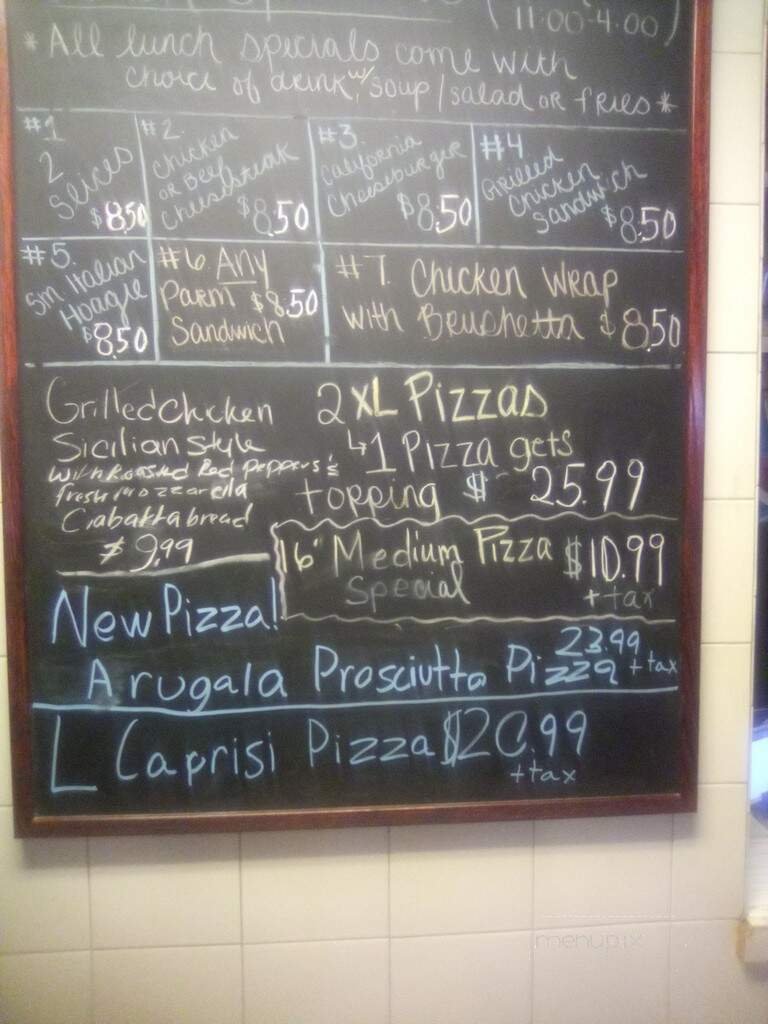 (11:00-4:00)
*All lunch specials come with
choice of drink, w/ soup/salad or fries*
#1
2
Slices
$8.50
#2.
Chicken
or Beef
Cheesesteak
$8.50
#3.
California
Cheeseburger
$8.50
#4
Grilled
Chicken
Sandwich
$8.50
#5.
Sm. Italian
Hoagie
$8.50
#6. Any
Parm $8.50
Sandwich
#7. Chicken Wrap
with Brushetta $8.50
Grilled Chicken
Sicilian Style
with Roasted Red Peppers &
fresh mozzarella
Ciabatta bread
$9.99
2 XL Pizzas
↳1 Pizza gets
topping $ 25.99
16" Medium Pizza $10.99
Special + tax
New Pizza!
23.99
Arugala Prosciutto Pizza + tax
L Caprisi Pizza $20.99
+ tax
menupix